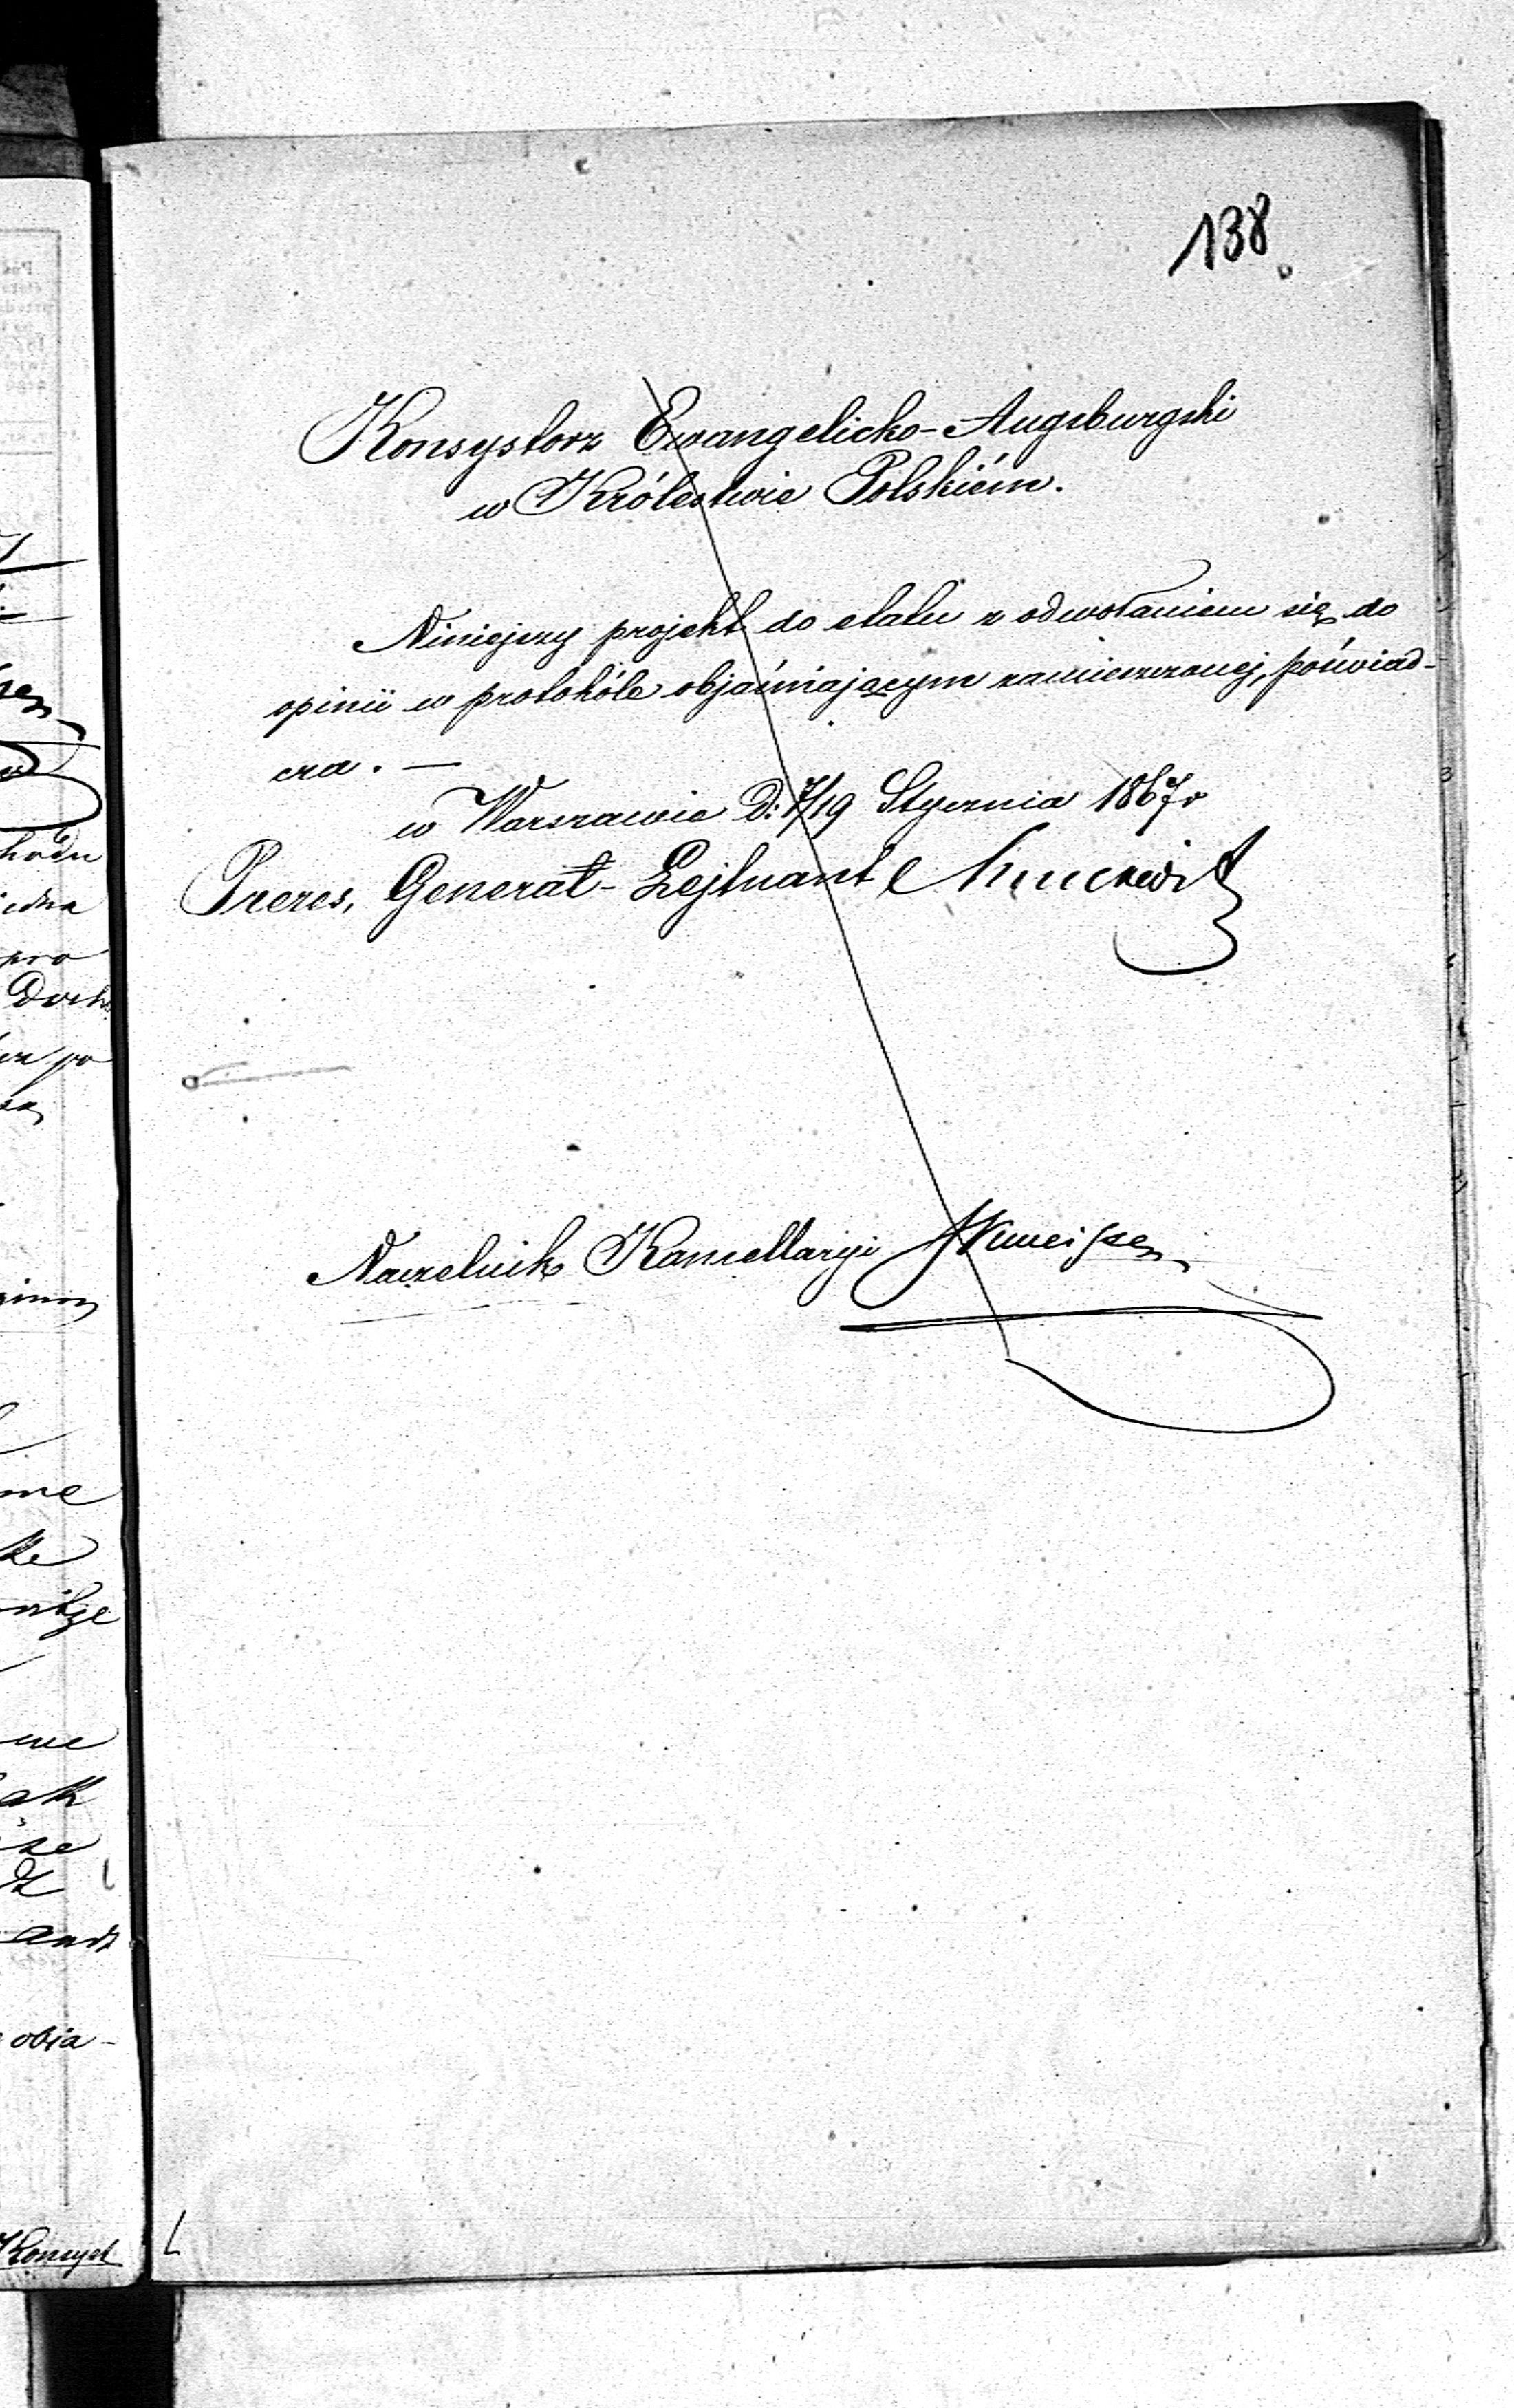 138
Konsystorz Ewangelicko-Augsburgski
w Królestwie Polskiém.
Niniejszy projekt do etatu z odwołaniem się do
opinii w protokóle objaśniającym zamieszczonej, poświad-
cza. —
w Warszawie D: 7/19 Stycznia 1867 r
Prezes, Generał-Lejtnant
Naczelnik Kancellaryi